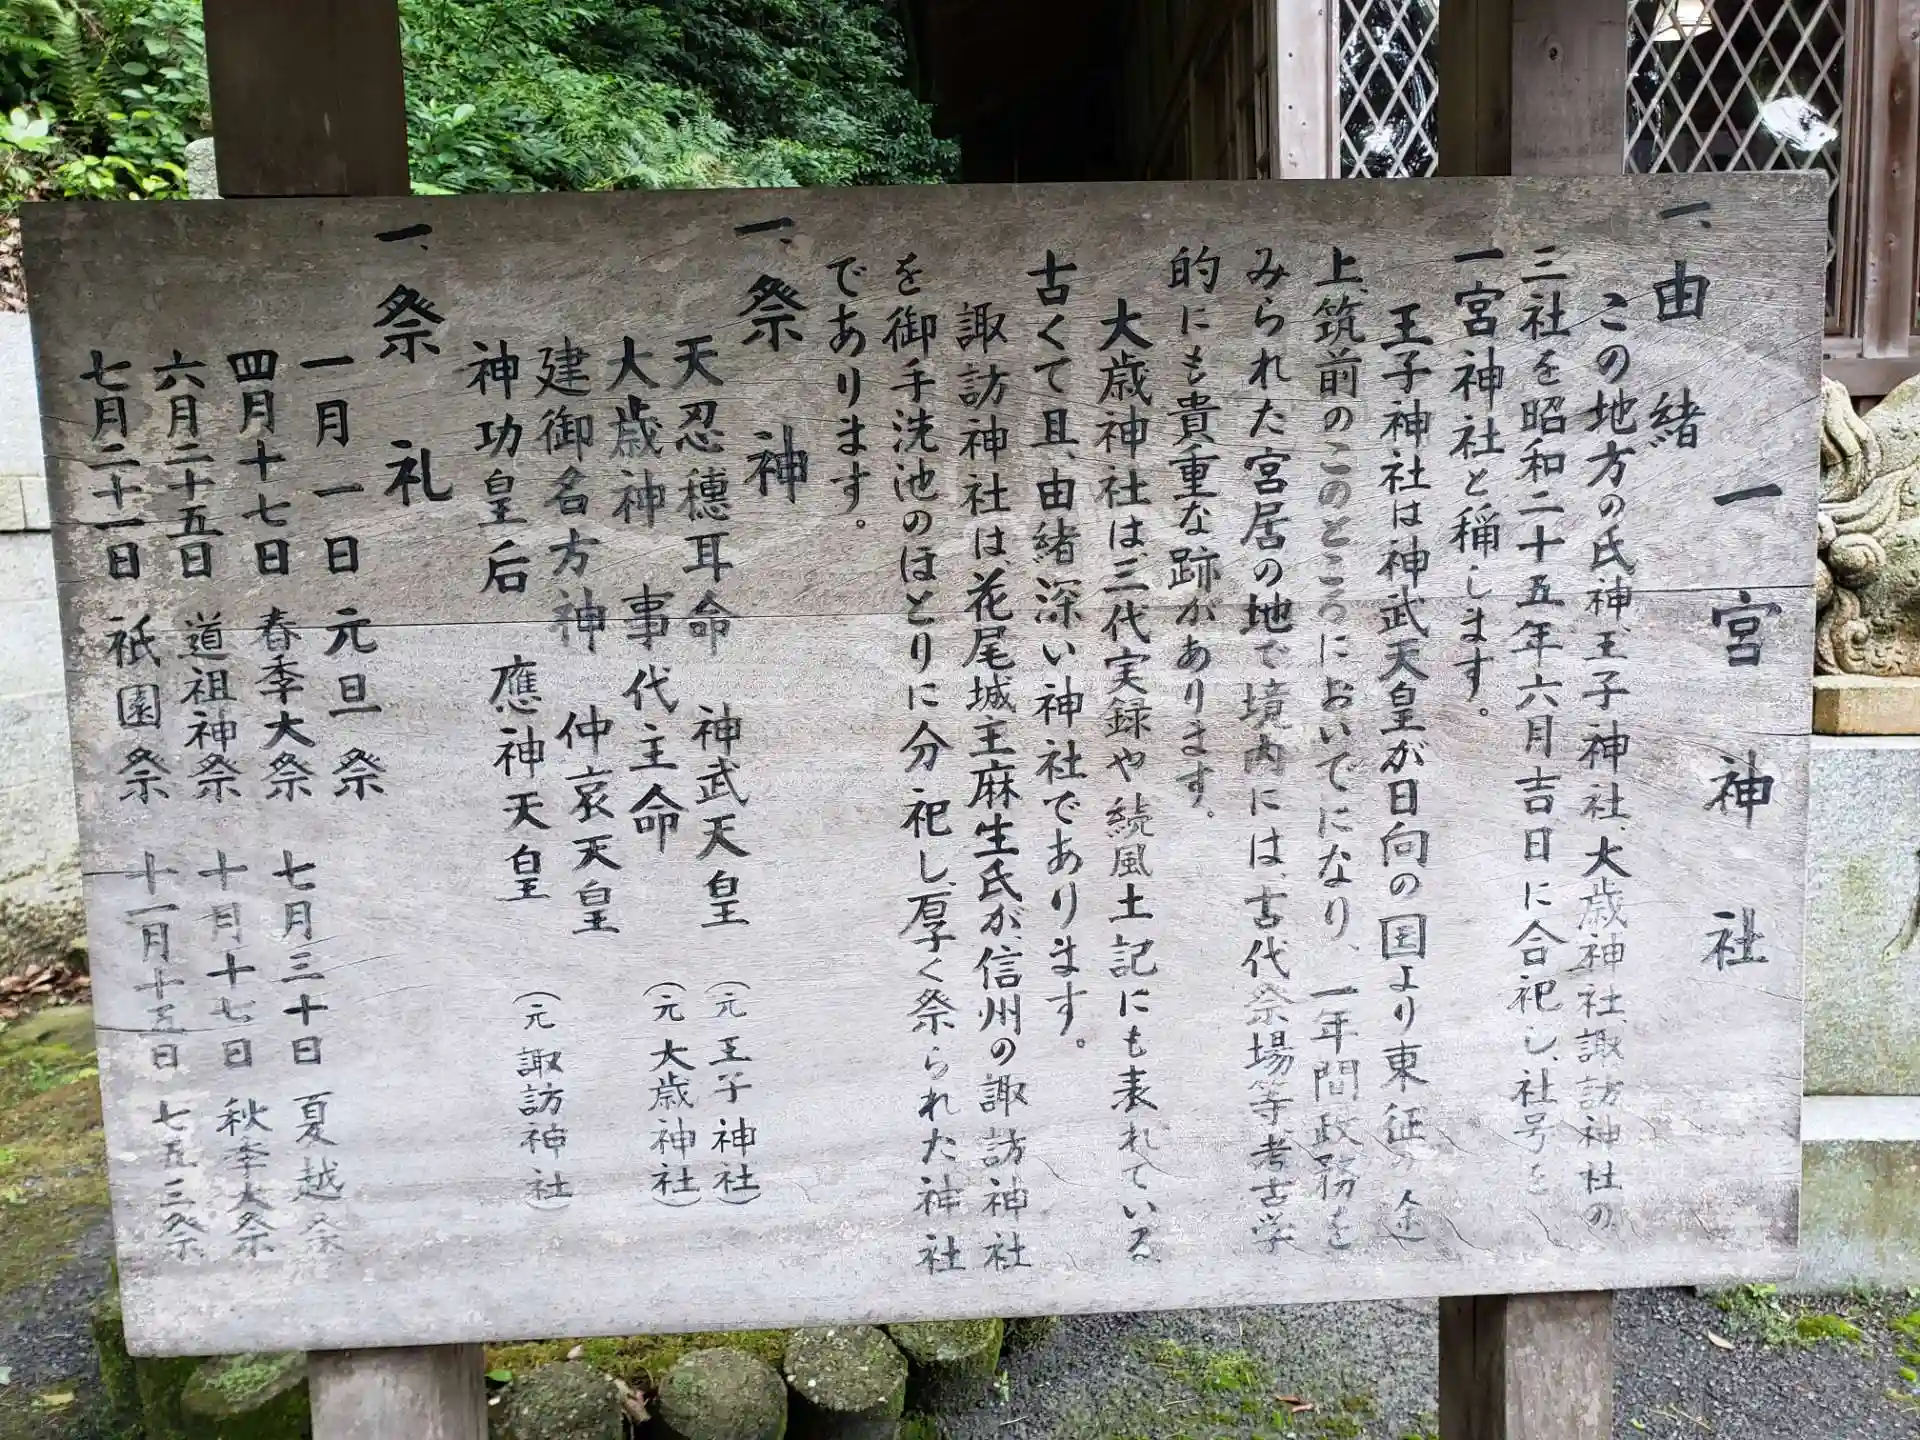 一宮神社
一、由緒
この地方の氏神、王子神社、大歳神社、諏訪神社の
三社を昭和二十五年六月吉日に合祀し、社号を
一宮神社と稱します。
王子神社は神武天皇が日向の国より東征の途
上、筑前のこのところにおいでになり、一年間政務を
みられた宮居の地で境内には、古代祭場等考古学
的にも貴重な跡があります。
大歳神社は、三代実録や続風土記にも表れている
古くて且、由緒深い神社であります。
諏訪神社は、花尾城主麻生氏が、信州の諏訪神社
を御手洗池のほとりに分祀し、厚く祭られた神社
であります。
一、祭神
天忍穗耳命 神武天皇 (元王子神社)
大歳神 事代主命 (元大歳神社)
建御名方神 仲哀天皇
神功皇后 應神天皇 (元諏訪神社)
一、祭礼
一月一日 元旦祭 七月三十日 夏越祭
四月十七日 春季大祭 十月十七日 秋季大祭
六月二十五日 道祖神祭 十一月十五日 七五三祭
七月二十一日 祇園祭